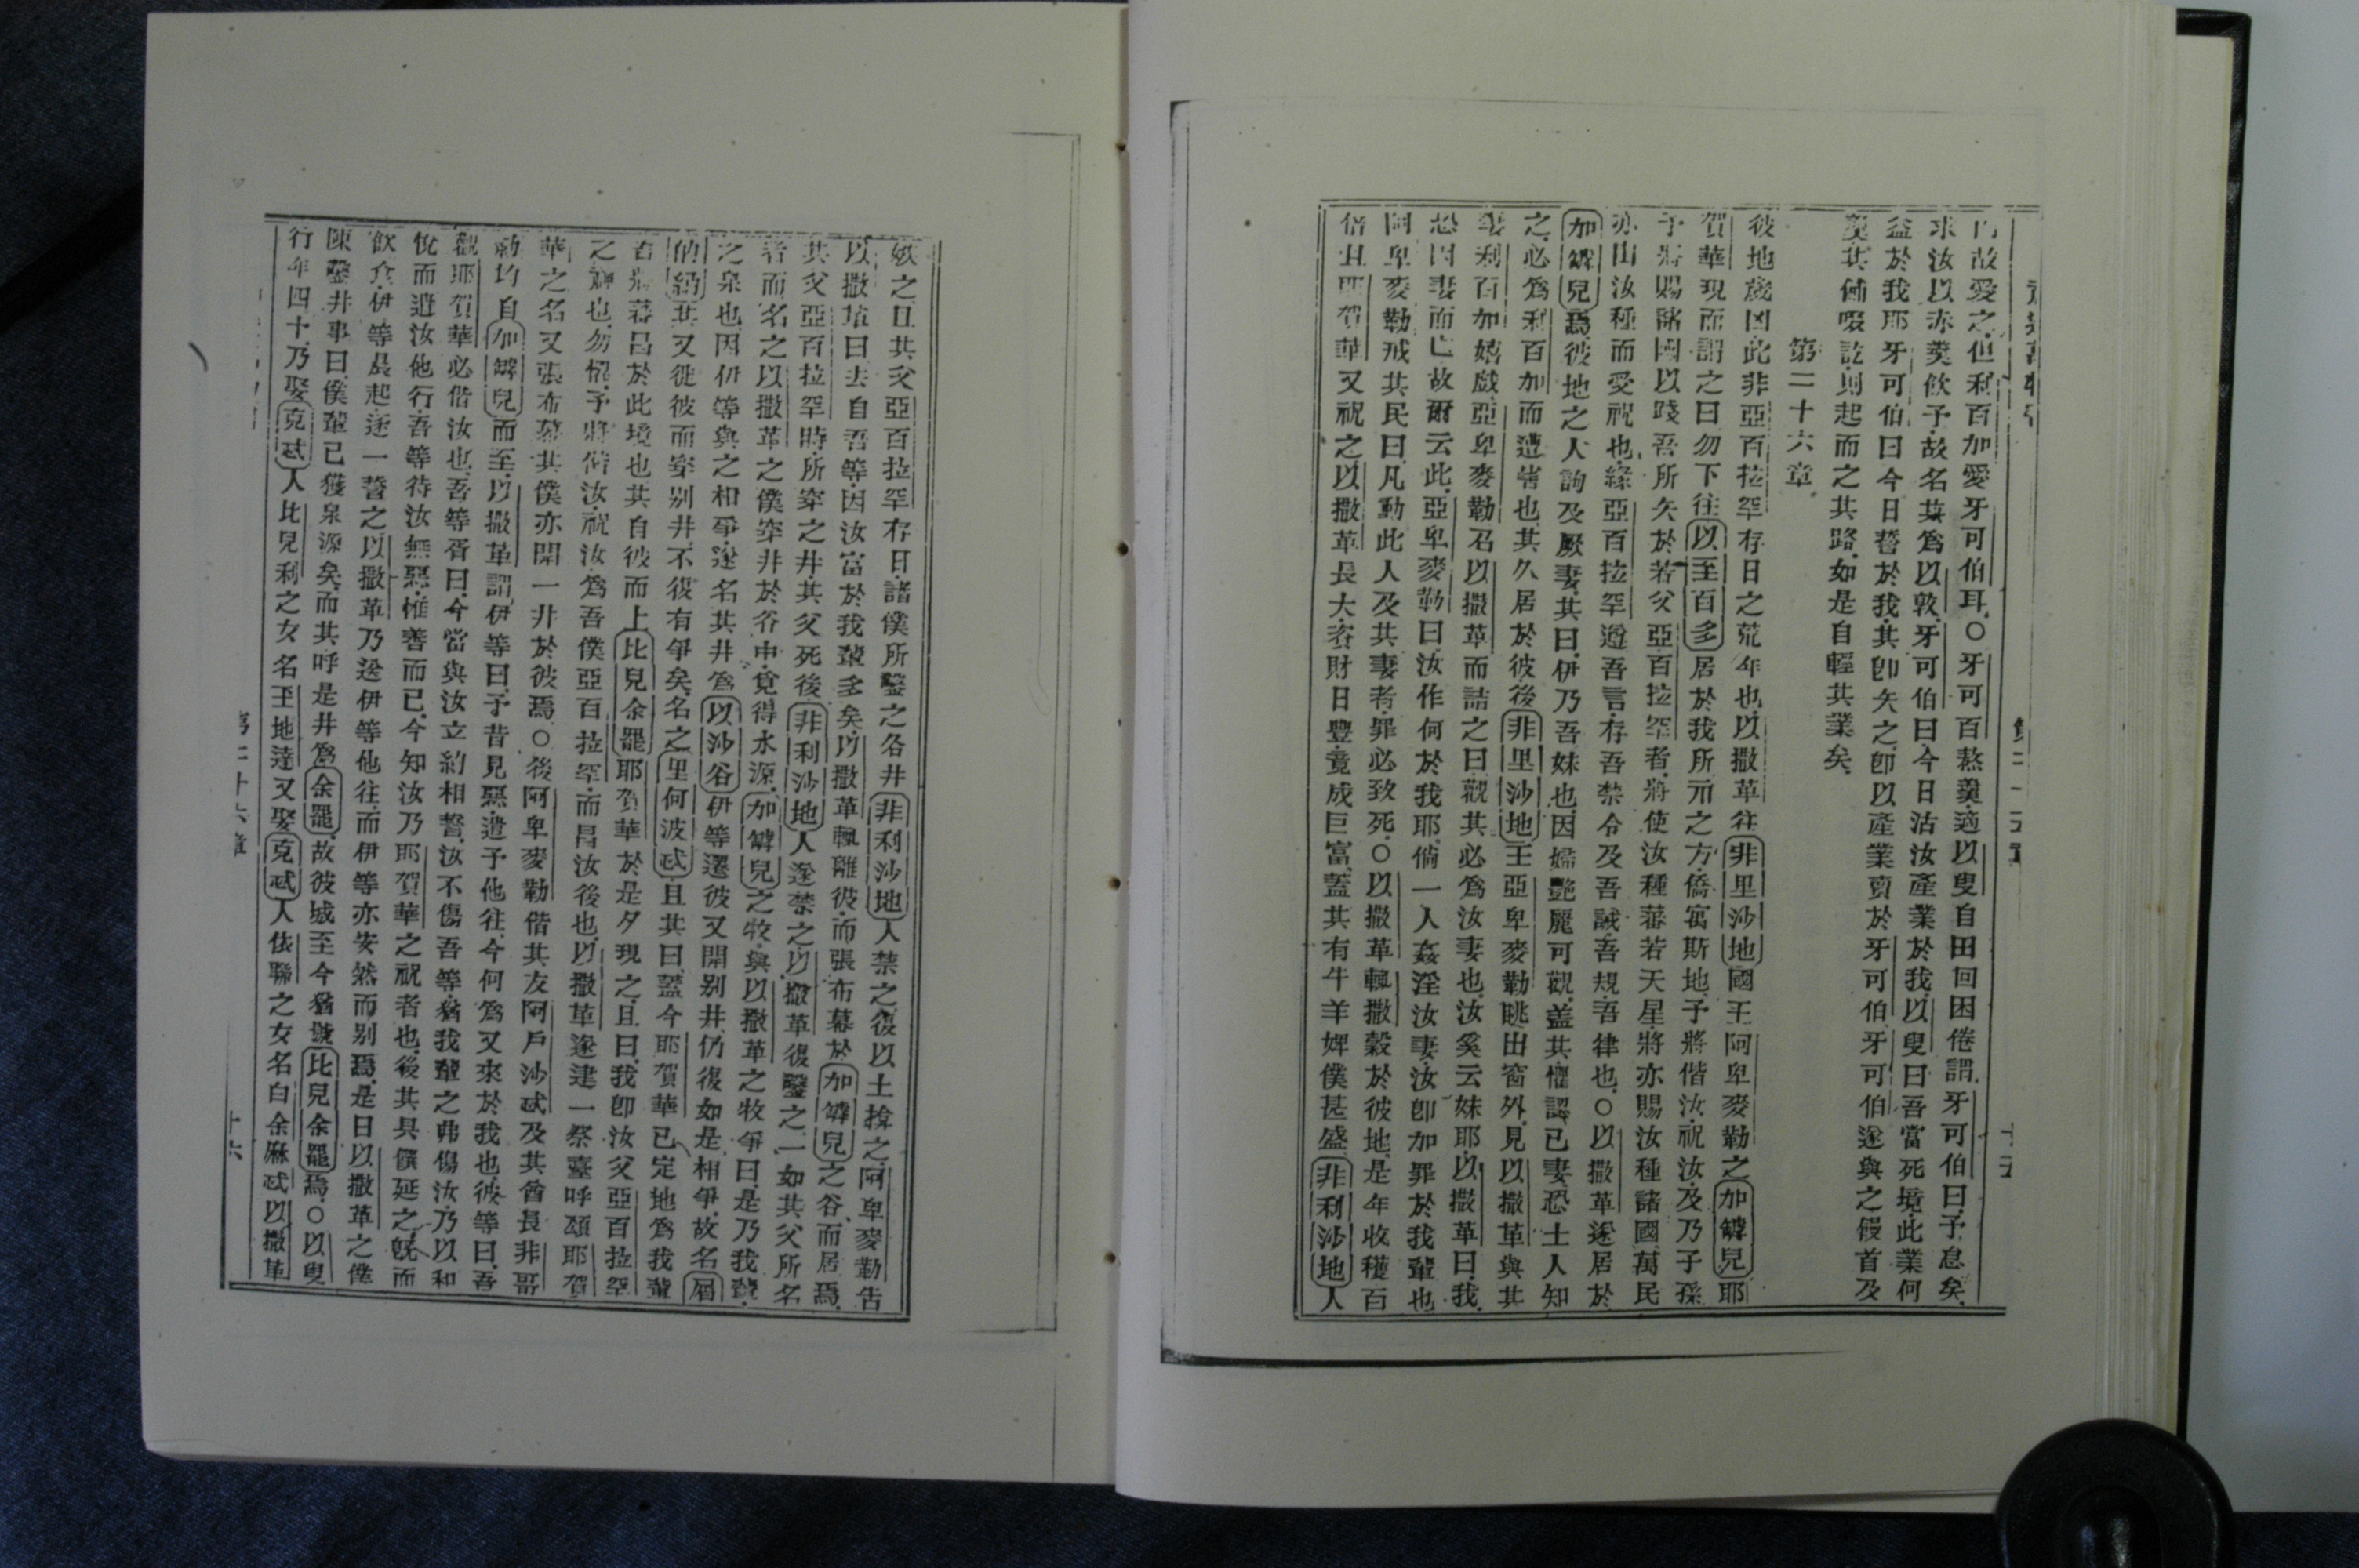 故愛之但利百加愛牙可伯耳○牙可百熬羹適以叟自田回困倦謂牙可伯曰予怠矣
求汝以赤羹飲予故名其爲以敦牙可伯曰今日沽汝產業於我以叟曰吾當死境此業何
益於我耶牙可伯曰今日誓於我其卽矢之卽以產業賣於牙可伯牙可伯遂與之餽首及
羹其餔啜訖則起而之其路如是自輕其業矣
第二十六章
彼地歲凶此非亞百拉罕存日之荒年也以撒革往非里沙地國王阿卑麥勒之加罅兒耶
賀華現而謂之曰勿下往以至百多居於我所示之方僑寓斯地予將偕汝祝汝及乃子孫
予將賜諸國以踐吾所矢於若父亞百拉罕者將使汝種蕃若天星將亦賜汝種諸國萬民
亦由汝種而愛祝也緣亞百拉罕遵吾言存吾禁令及吾誡吾規吾律也○以撒革遂居於
加罅兒焉彼地之人詢及厥妻其曰伊乃吾妹也因婦艷麗可觀盖其懼認已妻恐土人知
之必爲利百加而遭害也其久居於彼後非里沙地王亞卑麥勒眺出窗外見以撒革與其
妻利百加嬉戲亞卑麥勒召以撒革而詰之曰觀其必爲汝妻也汝奚云妹耶以撒革曰我
恐因妻而亡故爾云此亞卑麥勒曰汝作何於我耶倘一人姦淫汝妻汝卽加罪於我輩也
阿卑麥勒戒其民曰凡動此人及其妻者罪必致死○以撒革輒撒穀於彼地是年收穫百
倍且耶賀華又祝之以撒革長大㐮財日豐竟成巨富蓋其有牛羊婢僕甚盛非利沙地人
第二十五章
十五
嫉之且其父亞百拉罕存日諸僕所鑿之各井非利沙地人禁之復以土揜之阿卑麥勒告
以撒革曰去自吾等因汝富於我輩多矣以撒革輒離彼而張布幕於加罅兒之谷而居焉
其父亞百拉罕時所穿之井其父死後非利沙地人遂禁之以撒革復鑿之一如其父所名
者而名之以撒革之僕穿井於谷中覓得水源加罅兒之牧與以撒革之牧爭曰是乃我輩
之泉也因伊等與之相爭遂名其井爲以沙谷伊等還彼又開別井仍復如是相爭故名屑
的納其又徙彼而穿別井不復有爭矣名之里何波忒且其曰蓋今耶賀華已定地爲我輩
者將蕃昌於此境也其自彼而上比兒余罷耶賀華於是夕現之且曰我卽汝父亞百拉罕
之神也勿懼予將偕汝祝汝爲吾僕亞百拉罕而昌汝後也以撒革遂建一祭臺呼頌耶賀
華之名又張布幕其僕亦開一井於彼焉○後阿卑麥勒偕其友阿戶沙忒及其酋長非哥
勒均自加罅兒而至以撒革謂伊等曰予昔見惡遣予他往今何爲又來於我也彼等曰吾
觀耶賀華必偕汝也吾等胥曰今當與汝立約相誓汝不傷吾等猶我輩之弗傷汝乃以和
悅而遣汝他行吾等待汝無惡惟善而已今知汝乃耶賀華之祝者也後其具饌延之旣而
飲食伊等晨起逐一誓之以撒革乃送伊等他往而伊等亦安然而別焉是日以撒革之僕
陳鑿井事曰僕輩已獲泉源矣而其呼是井爲余罷故彼城至今猶號比兒余罷焉○以叟
行年四十乃娶克忒人比兒利之女名王地達又娶克忒人依聯之女名白余麻忒以撒革
第二十六章
十六